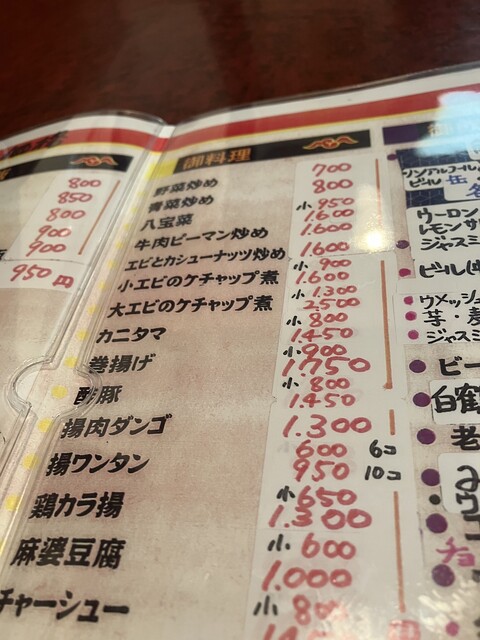 800
850
800
900
900
950円
御料理
野菜炒め 700
青菜炒め 800
八宝菜 小 950
1.600
牛肉ピーマン炒め 1.600
エビとカシューナッツ炒め 1.600
小エビのケチャップ煮 小 900
1.600
大エビのケチャップ煮 小 1.300
2.500
カニタマ 小 800
1.450
巻揚げ 小 900
1.750
酢豚 小 800
1.450
揚肉ダンゴ 1.300
揚ワンタン 600 6コ
950 10コ
鶏カラ揚 小 650
1.300
麻婆豆腐 小 600
1.000
チャーシュー 小
ノンアルコール
ビール
ウーロン
レモンサ
ジャスミ
ビール
ウメッシュ
芋・
ジャスミ
ビー
白鶴
老